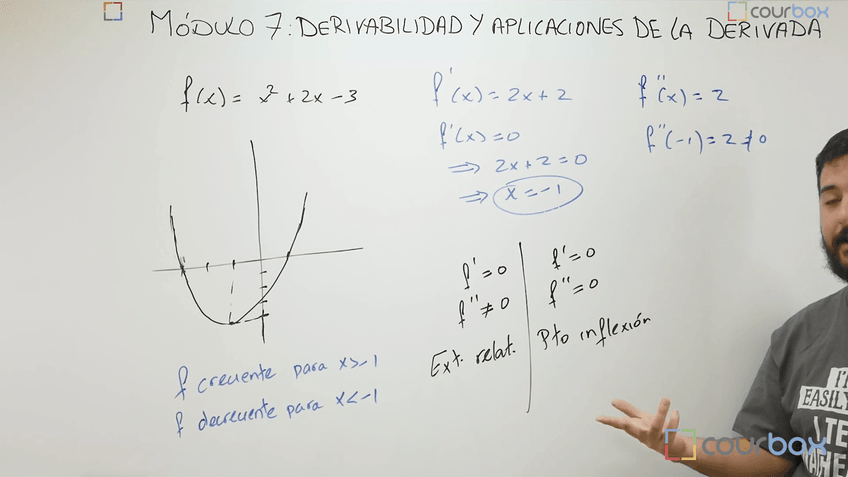 courbox
MÓDULO 7: DERIVABILIDAD Y APLICACIONES DE LA DERIVADA
f(x) = x² + 2x - 3
f'(x) = 2x + 2
f'(x) = 0
⇒ 2x + 2 = 0
⇒ x = -1
f''(x) = 2
f''(-1) = 2 ≠ 0
f' = 0
f'' ≠ 0
Ext. relat.
f' = 0
f'' = 0
Pto inflexión
f creciente para x > -1
f decreciente para x < -1
I'M
EASILY
courbox